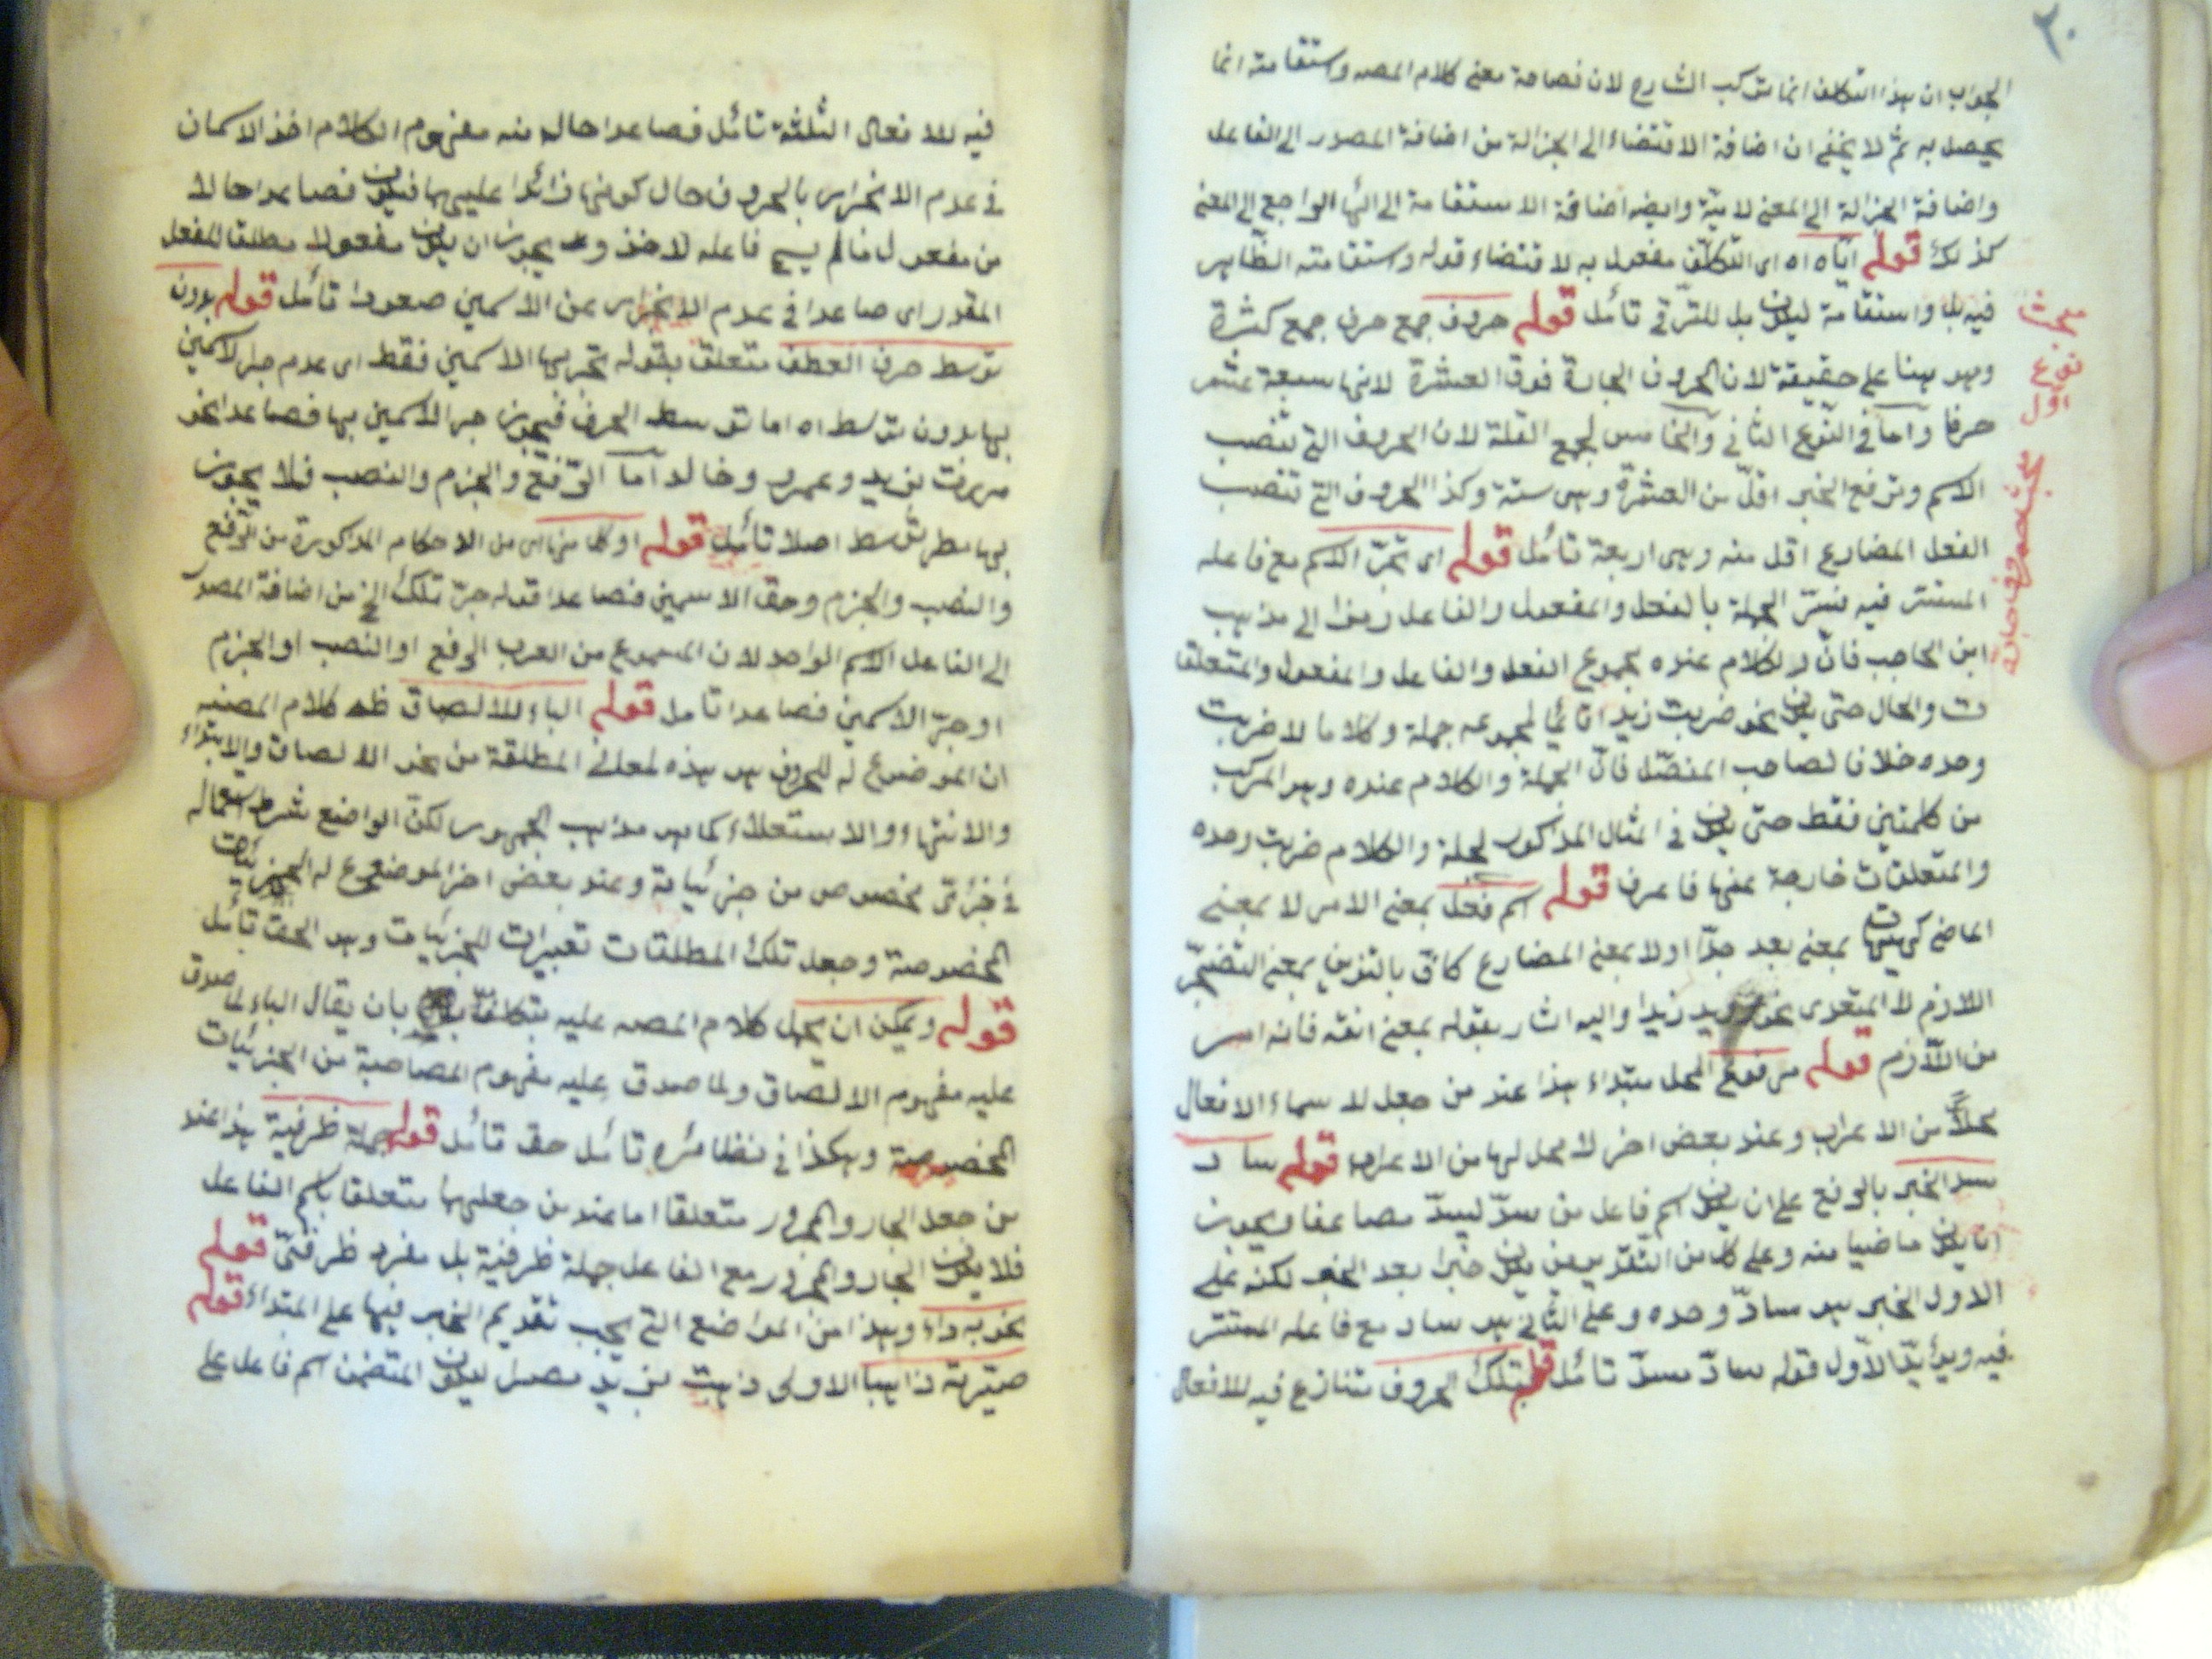 ٢٠
الجواب ان هذا التكلف انما يتركب الشارع لان فصاحة معنى كلام المصه واستقامته انما
يحصل به ثم لا يخفى ان اضافة الاقتضاء الى الجزالة من اضافة المصدر الى الفاعل
واضافة الجزالة الى المعنى لامية وايضه اضافة الاستقامة الى الهاء الراجع الى المعنى
كذلك قوله اياه اه اى التكلف مفعول به لاقتضاء قوله واستقامته الظاهر
فيه بل واستقامة ليكون بل للترقى تأمل قوله حروف جمع حرف جمع كثرة
وهو هنا على حقيقة لان الحروف الجارة فوق العشرة لانها سبعة عشر
حرفا وآما فى النوع الثانى والخامس لجمع القلة لان الحروف التى تنصب
الاسم وترفع الخبر اقل من العشرة وهى ستة وكذا الحروف التى تنصب
الفعل المضارع اقل منه وهى اربعة تأمل قوله اى تجر الاسم مع فاعله
المستتر فيه فسر الجملة بالفعل والمفعول والفاعل رمزا الى مذهب
ابن الحاجب فان الكلام عنده مجموع الفعل والفاعل والمفعول والمتعلقا
ت والحال حتى يكون نحو ضربت زيدا قائما لمجموعه جملة وكلاما لا ضربت
وحده خلافا لصاحب المفصّل فانّ الجملة والكلام عنده وهو المركب
من كلمتين فقط حتى يكون فى المثال المذكور لجملة والكلام ضربت وحده
والمتعلقات خارجة عنها فاعرف قوله اسم فعل بمعنى الامر لا بمعنى
الماضى كهيهات بمعنى بعد جدّا اولا بمعنى المضارع كاف بالتنوين بمعنى اتضجّر
اللازم لا المتعدى نحو رويد زيدا واليه اشار بقوله بمعنى انته فانه امر
من اللازم قوله مرفوع المحل مبتداء هذا عند من جعل للاسماء الافعال
محلاً من الاعراب وعند بعض اخر لا محل لها من الاعراب قوله ساد
مسد الخبر بالرفع على ان يكون اسم فاعل من سدّ ليسدّ مضاعفا ويجوز
ان يكون ماضيا منه وعلى كل من التقديرين يكون خبرا بعد الخبر لكنه على
الاول الخبر هو سادّ وحده وعلى الثانى هو ساد مع فاعله المستتر
فيه ويؤيّد الاوّل قوله سادّ مسدّ تأمل قوله تلك الحروف تنازع فيه للافعال
مبحث
نوع
اول
مبحث حروف جارة
فيه للافعال الثلثة تأمل فصاعدا حال منه مفهوم الكلام اخذ الاسمان
فى عدم الانجرار بالحروف حال كونها زائدا عليهما فيكون فصاعدا حالا
من مفعول ما لم يسم فاعله لاخذ و يجوز ان يكون مفعولا مطلقا للفعل
المقدر اى صاعدا فى عدم الانجرار عن الاسمين صعودا تأمل قوله بدون
توسط حرف العطف متعلق بقوله تجر بها الاسمين فقط اى عدم جر الاسمين
بها بدون توسط اه اما توسط الحرف فيجوز جر الاسمين بها فصاعدا نحو
مررت بزيد وعمرو وخالد آما الرفع والجزم والنصب فلا يجوز
بها بطريق توسط اصلا تأمل قوله او كل منها اى من الاحكام المذكورة من الرفع
والنصب والجزم وحق الاسمين فصاعدا قوله جرّ تلك الخ من اضافة المصدر
الى الفاعل الاسم الواحد لان المسموع من العرب الرفع او النصب او الجزم
او جرّ الاسمين فصاعدا تأمل قوله الباء للالصاق ظه كلام المصنف
ان الموضوع له للحروف هو هذه المعانى المطلقة من نحو الالصاق والابتداء
والانتهاء والاستعلاء كما هو مذهب الجمهور لكن الواضع شرط استعماله
فى جزئى مخصوص من جزئياته وعند بعض اخر الموضوع له الجزئيات
المخصوصة وجعل تلك المطلقات تعبيرات للجزئيات وهو الحق تأمل
قوله ويمكن ان يحمل كلام المصه عليه بتكلف بان يقال الباء لما صدق
عليه مفهوم الالصاق ولما صدق عليه مفهوم المصاحبة من الجزئيات
المخصوصة وهكذا فى نظائره تأمل حق تأمل قوله جملة ظرفية هذا عند
من جعل الجار والمجرور متعلقا اما عند من جعلها متعلقا باسم الفاعل
فلا يكون الجار والمجرور مع الفاعل جملة ظرفية بل مفرد ظرفىّ قوله
نحو به داء وهذا من المواضع التى يجب تقديم الخبر فيها على المبتداء قوله
صيّرته ذاهبا الاولى ذهبت بزيد ليكون المتضمن اسم فاعل على